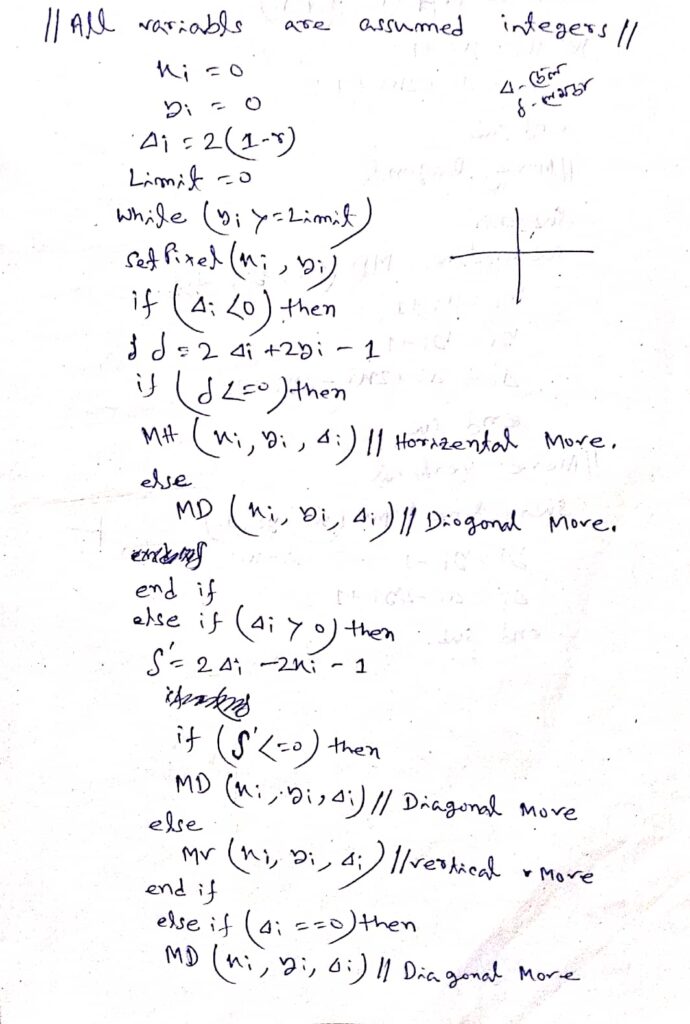 // All variabls are assumed integers //
xi = 0
yi = 0
Δi = 2(1-r)
Limit = 0
While (yi >= Limit)
Set Pixel (xi, yi)
if (Δi <0) then
d = 2 Δi +2yi - 1
if (d <=0) then
MH (xi, yi, Δi) // Horizental Move.
else
MD (xi, yi, Δi) // Diogonal Move.
end if
else if (Δi > 0) then
δ' = 2 Δi -2xi - 1
if (δ' <=0) then
MD (xi, yi, Δi) // Diagonal Move
else
MV (xi, yi, Δi) // vertical Move
end if
else if (Δi ==0) then
MD (xi, yi, Δi) // Diagonal Move